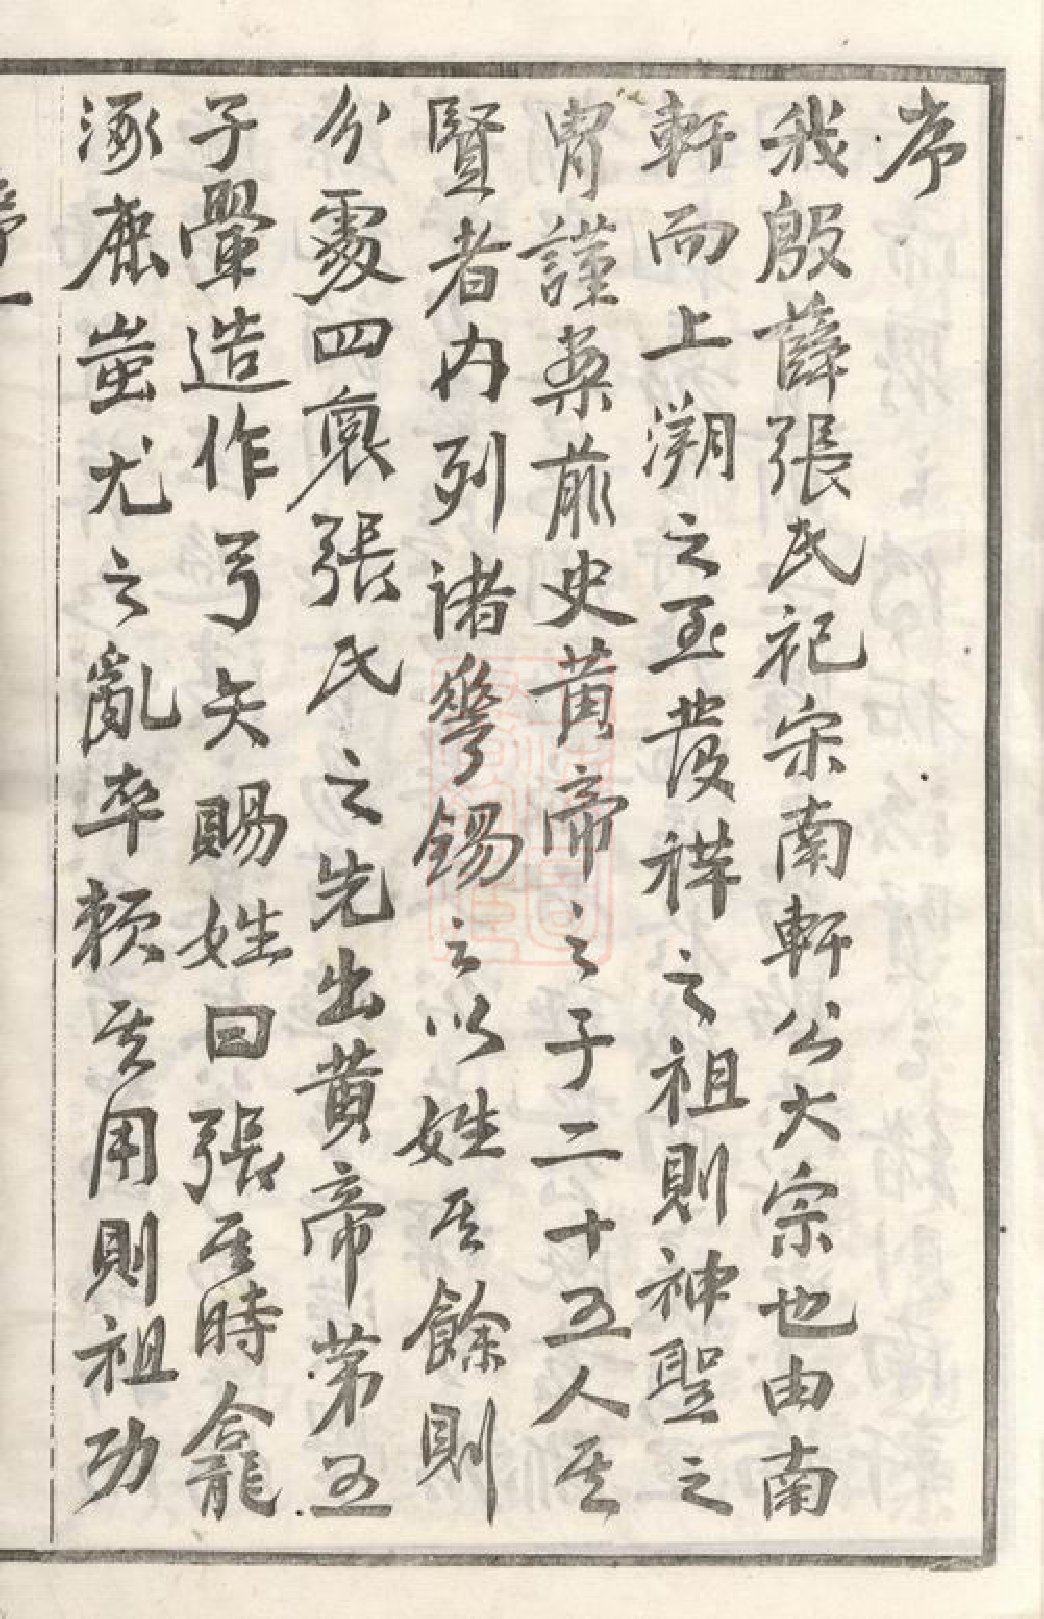 序
我殷薛張氏祀宗南軒公大宗也由南
軒而上溯之至發祥之祖則神聖之
冑謹案前史黄帝之子二十五人其
賢者内列諸夢錫之以姓其餘則
分處四裔張氏之先出黄帝第五
子翬造作弓矢賜姓曰張其時龕
涿鹿蚩尤之亂卒賴其用則祖功
序一